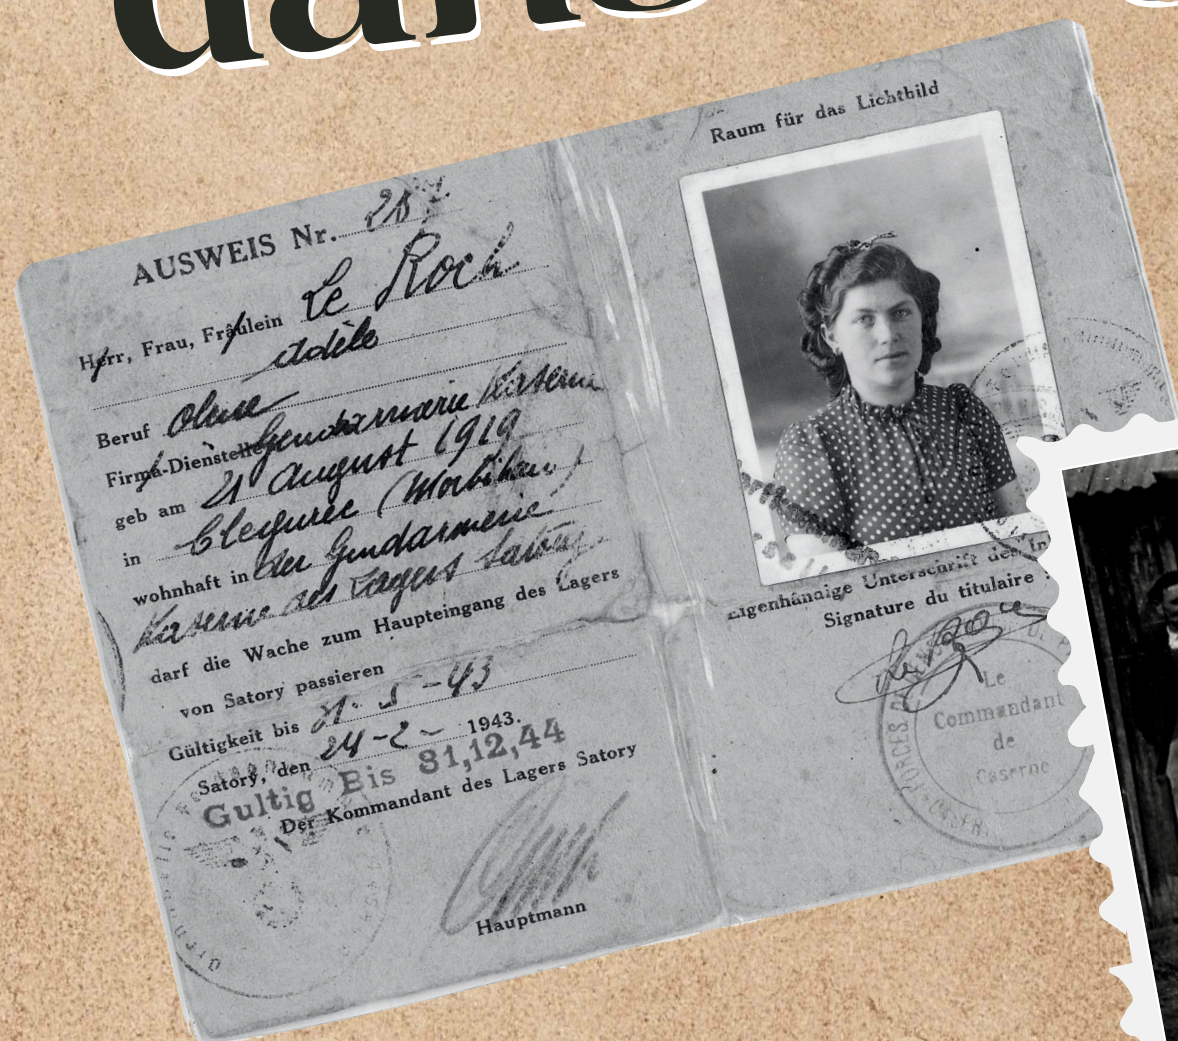 dans
AUSWEIS Nr. 28
Herr, Frau, Fräulein Le Roch
Adèle
Beruf Ohne
Firma-Dienstelle Gendarmerie Kaserne
geb am 21 August 1919
in Clegurec (Morbihan)
wohnhaft in der Gendarmerie
Kaserne des Lagers Satory
darf die Wache zum Haupteingang des Lagers
von Satory passieren
Gültigkeit bis 31-5-43
Satory, den 24-2- 1943.
Gultig Bis 31,12,44
Der Kommandant des Lagers Satory
Hauptmann
Raum für das Lichtbild
Eigenhändige Unterschrift des In
Signature du titulaire :
FORCES
Le
Commandant
de
Caserne